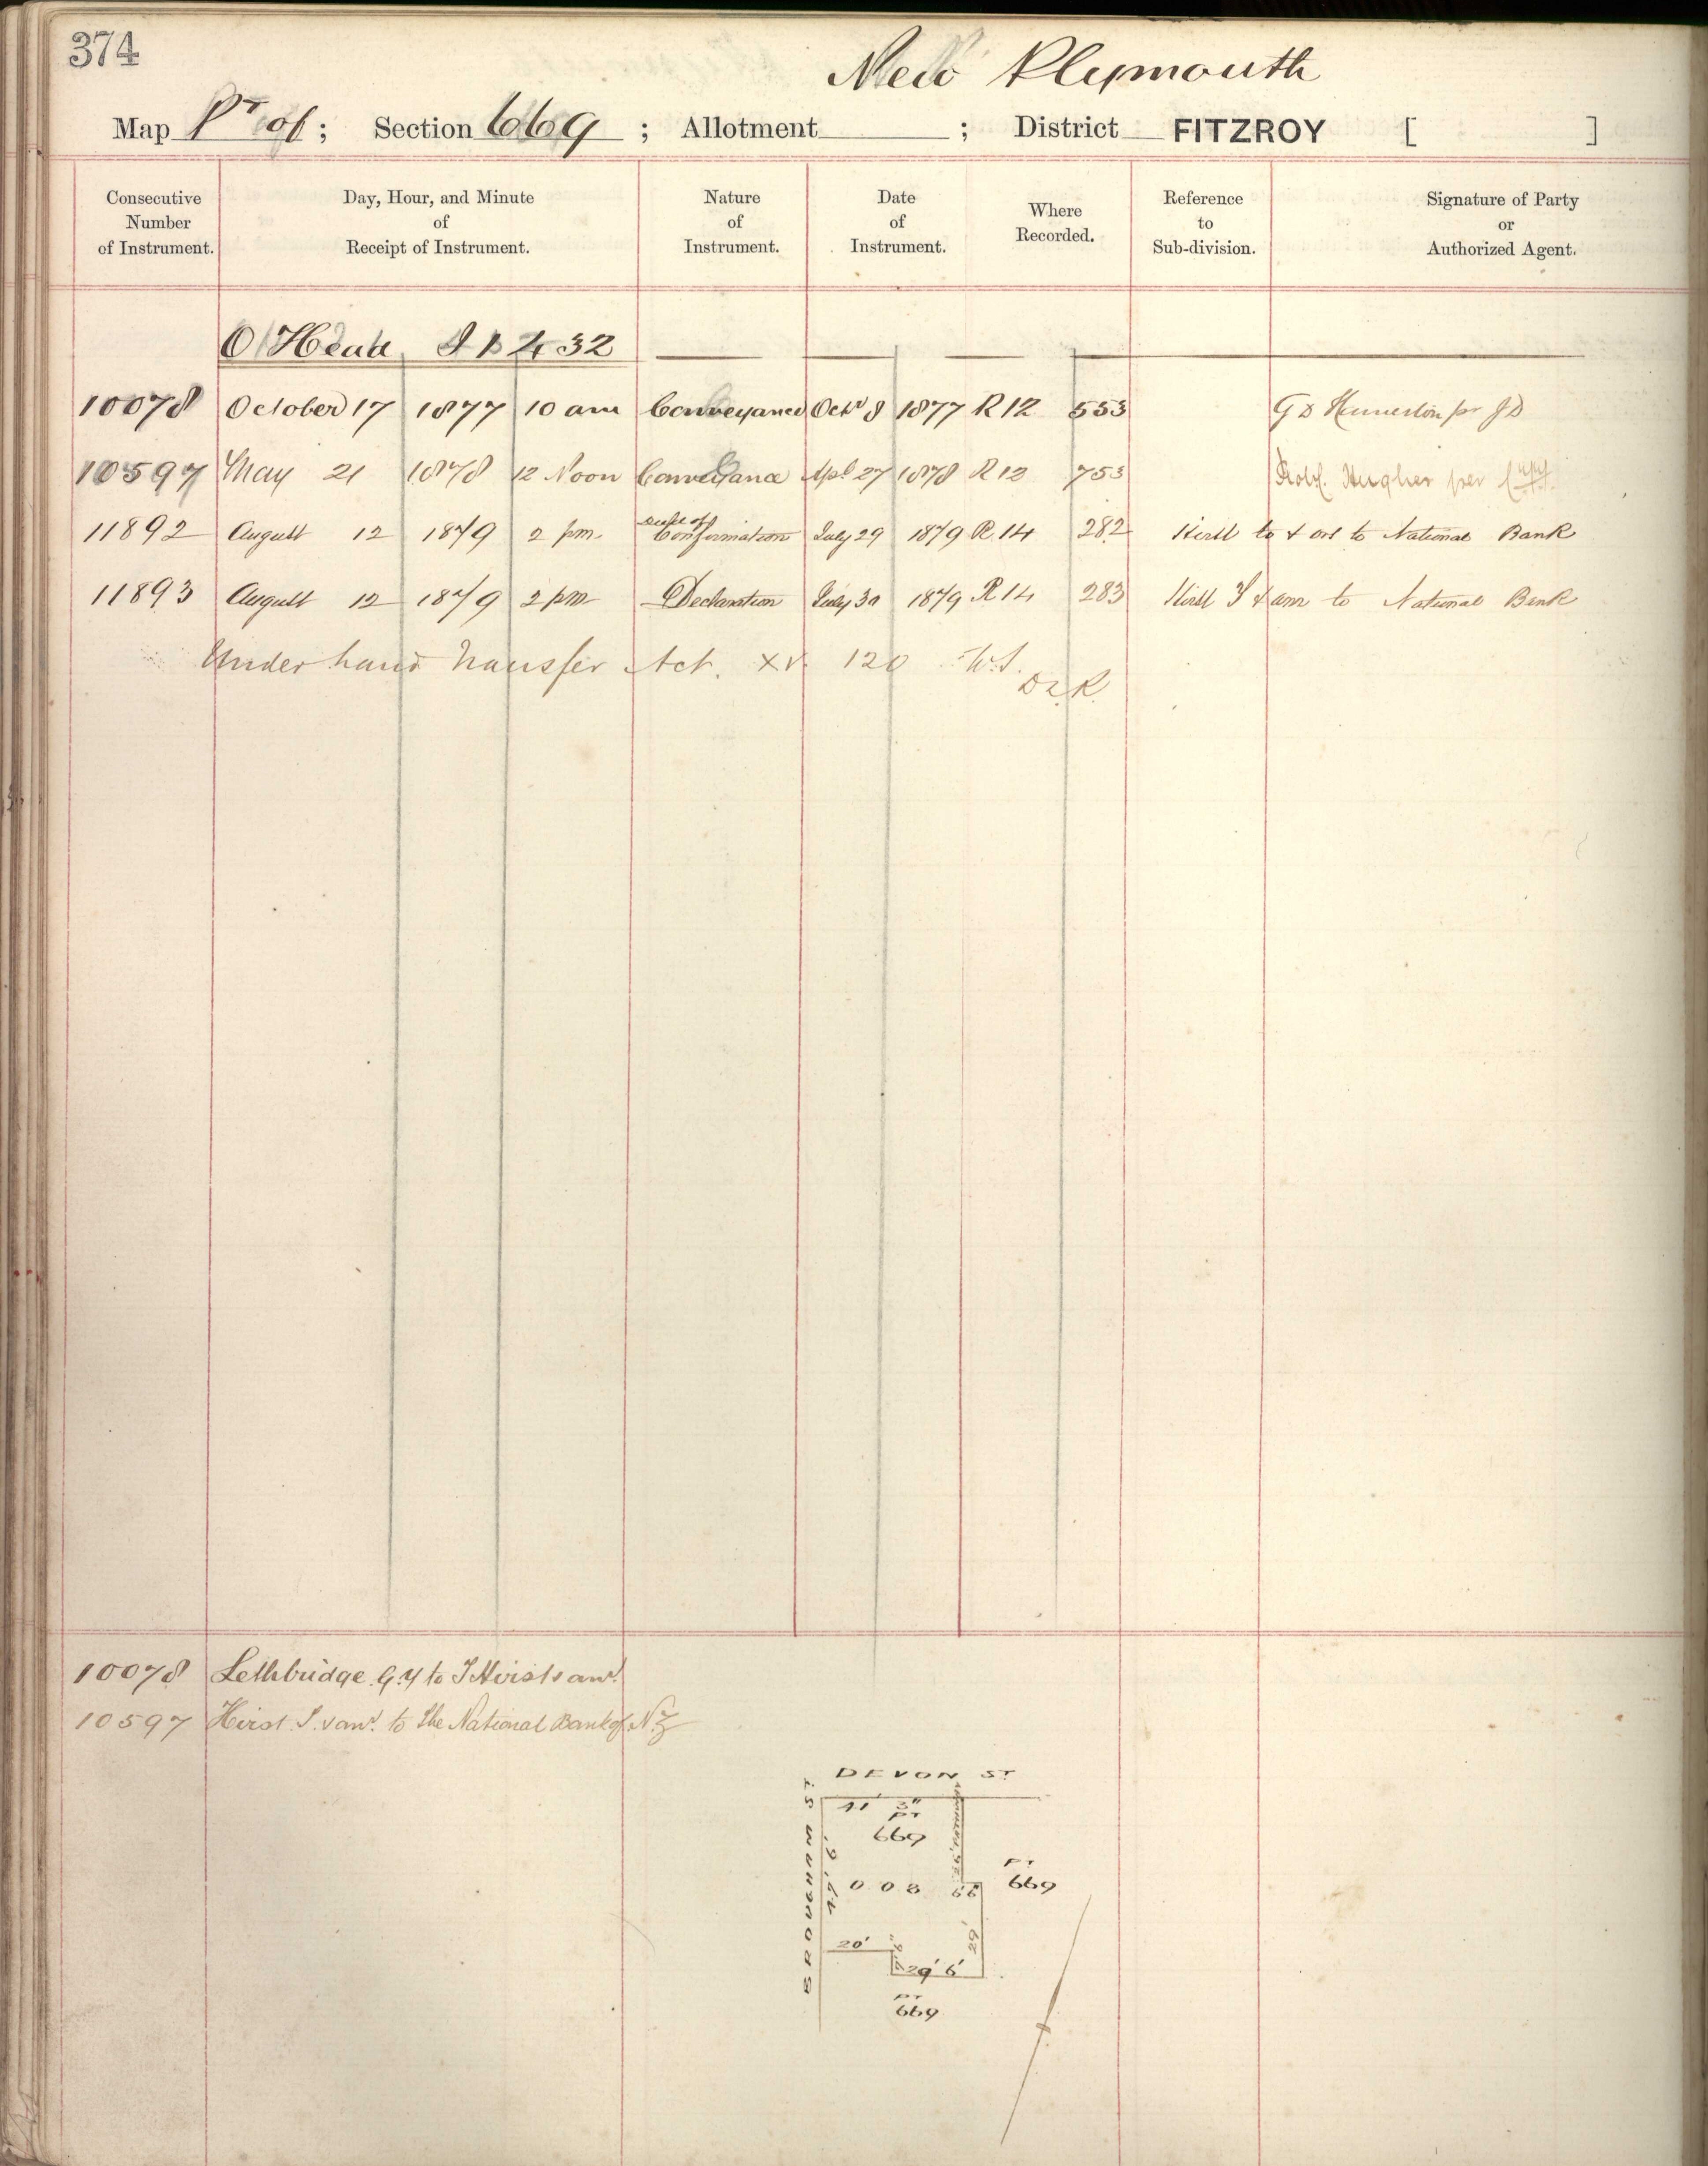 374
New Plymouth
Map Pt of; Section 669; Allotment ; District FITZROY [ ]
Consecutive Number of Instrument.
Day, Hour, and Minute of Receipt of Instrument.
Nature of Instrument.
Date of Instrument.
Where Recorded.
Reference to Sub-division.
Signature of Party or Authorized Agent.
32
10078 October 17 1877 10 am Conveyance Octr 8 1877 R 12 553
10597 May 21 1878 12 Noon Conveyance Apl 27 1878 R 12 753 Robt. Hughes per
11892 August 12 1879 2 pm Deed of Confirmation July 29 1879 R 14 282 to National Bank
11893 August 12 1879 2 pm Declaration July 30 1879 R 14 283 to National Bank
Under Land Transfer Act. XV 120
10078 Lethbridge G.Y to T Hirst & anr.
10597 Hirst T. & anr. to the National Bank of N.Z
DEVON ST
41' 3"
pt
669
BROUGHAM ST.
0 0 8
pt
669
29'
20'
29' 6
pt
669